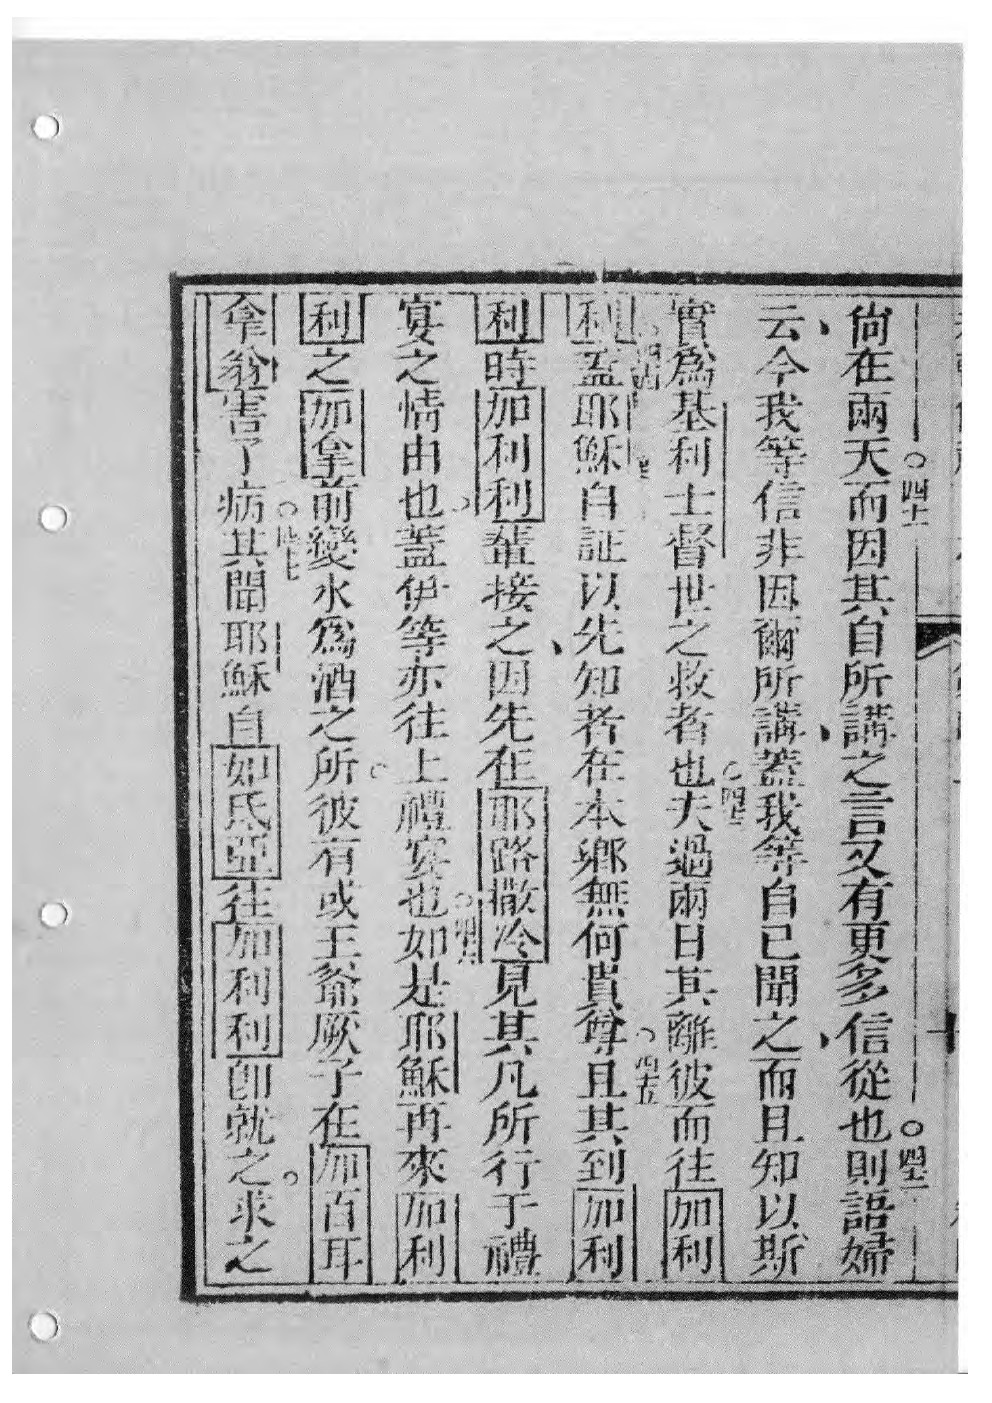 尙在兩天而因其自所講之言又有更多信從也則語婦
四十一
四十二
云今我等信非因爾所講蓋我等自己聞之而且知以斯
實爲基利士督世之救者也夫過兩日其離彼而往加利
四十三
利蓋耶穌自証以先知者在本鄉無何貴尊且其到加利
四十四
四十五
利時加利利輩接之因先在耶路撒冷見其凡所行于禮
宴之情由也蓋伊等亦往上禮宴也如是耶穌再來加利
四十六
利之加拿前變水爲酒之所彼有或王爺厥子在加百耳
拿翁害了病其聞耶穌自如氐亞往加利利卽就之求之
四十七